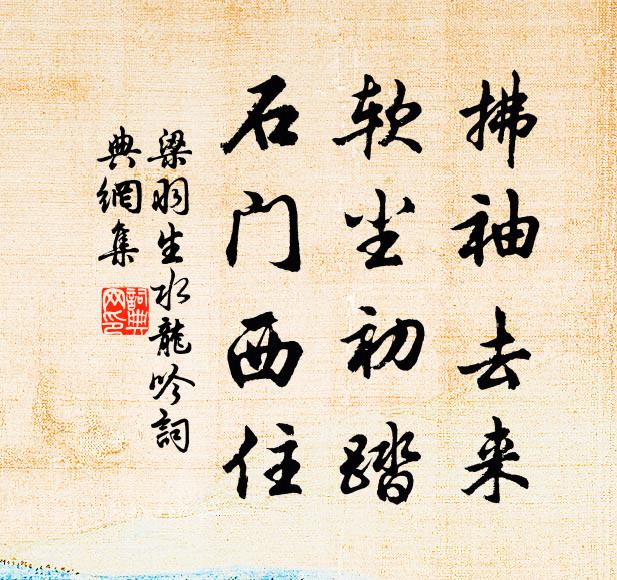 拂袖去来
软尘初踏
石门西住
梁羽生水龍吟詞
典網集
詞典网印